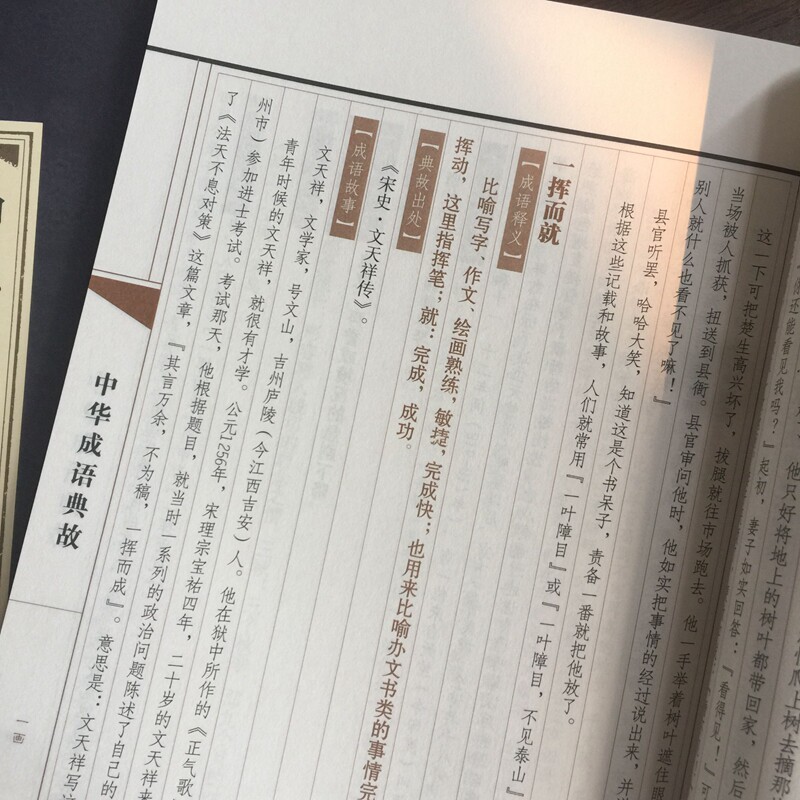 这一下可把楚生高兴坏了，拔腿就往市场跑去。他一手举着树叶遮住眼
当场被人抓获，扭送到县衙。县官审问他时，他如实把事情的经过说出来，并
别人就什么也看不见了嘛！』
县官听罢，哈哈大笑，知道这是个书呆子，责备一番就把他放了。
根据这些记载和故事，人们就常用『一叶障目』或『一叶障目，不见泰山』
一挥而就
【成语释义】
比喻写字、作文、绘画熟练，敏捷，完成快；也用来比喻办文书类的事情完
挥动，这里指挥笔；就：完成，成功。
【典故出处】
《宋史·文天祥传》。
【成语故事】
文天祥，文学家，号文山，吉州庐陵（今江西吉安）人。他在狱中所作的《正气歌
青年时候的文天祥，就很有才学。公元1256年，宋理宗宝祐四年，二十岁的文天祥来
州市）参加进士考试。考试那天，他根据题目，就当时一系列的政治问题陈述了自己的
了《法天不息对策》这篇文章，『其言万余，不为稿，一挥而成』。意思是：文天祥写这
中华成语典故
一画